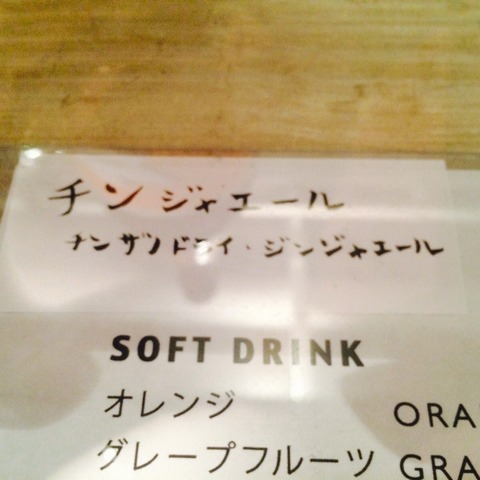 チンジャエール
チンザノドライ・ジンジャエール
SOFT DRINK
オレンジ ORA
グレープフルーツ GRA